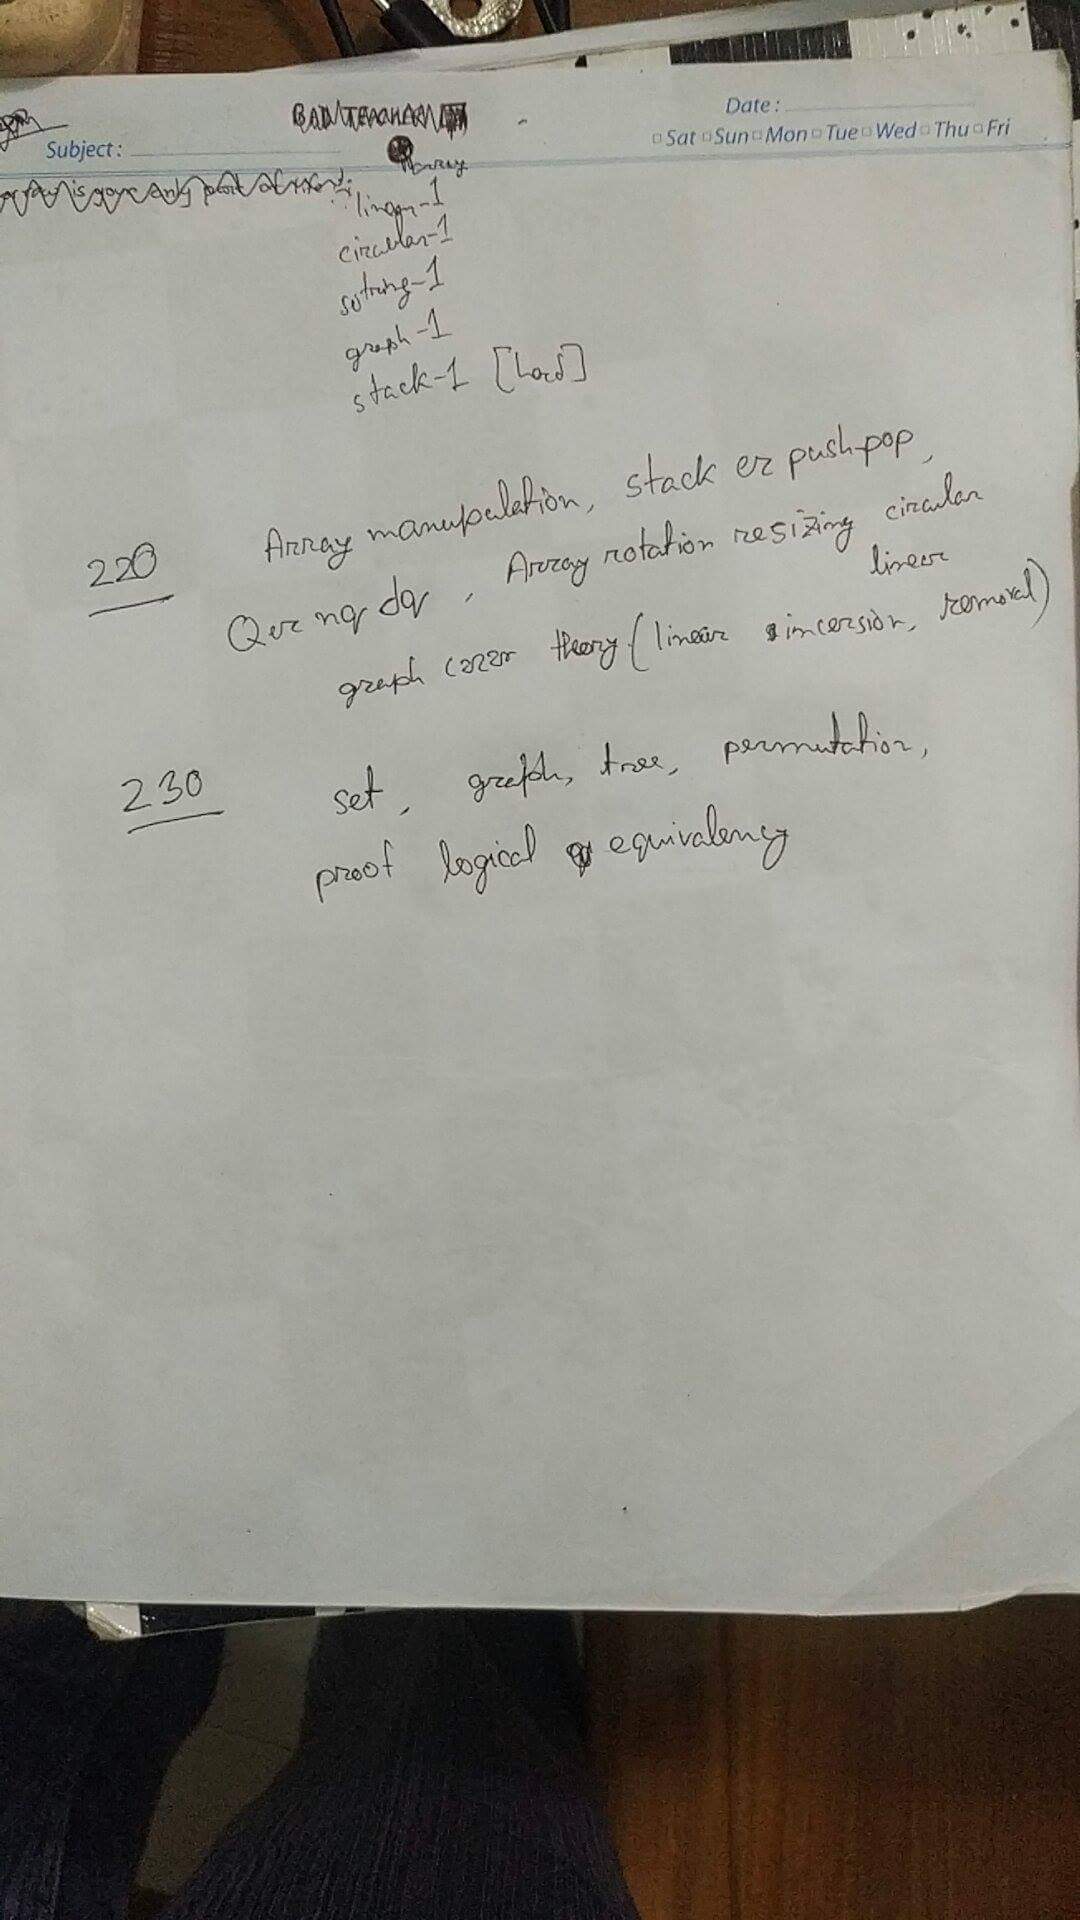 Date :
Subject :
Sat Sun Mon Tue Wed Thu Fri
Array
linear-1
circular-1
string-1
graph-1
stack-1 [hard]
220 Array manupulation, stack er push-pop,
Que nq dq, Array rotation resizing circular
linear
graph theory (linear incersion, removal)
230 set, graph, tree, permutation,
proof logical equivalency